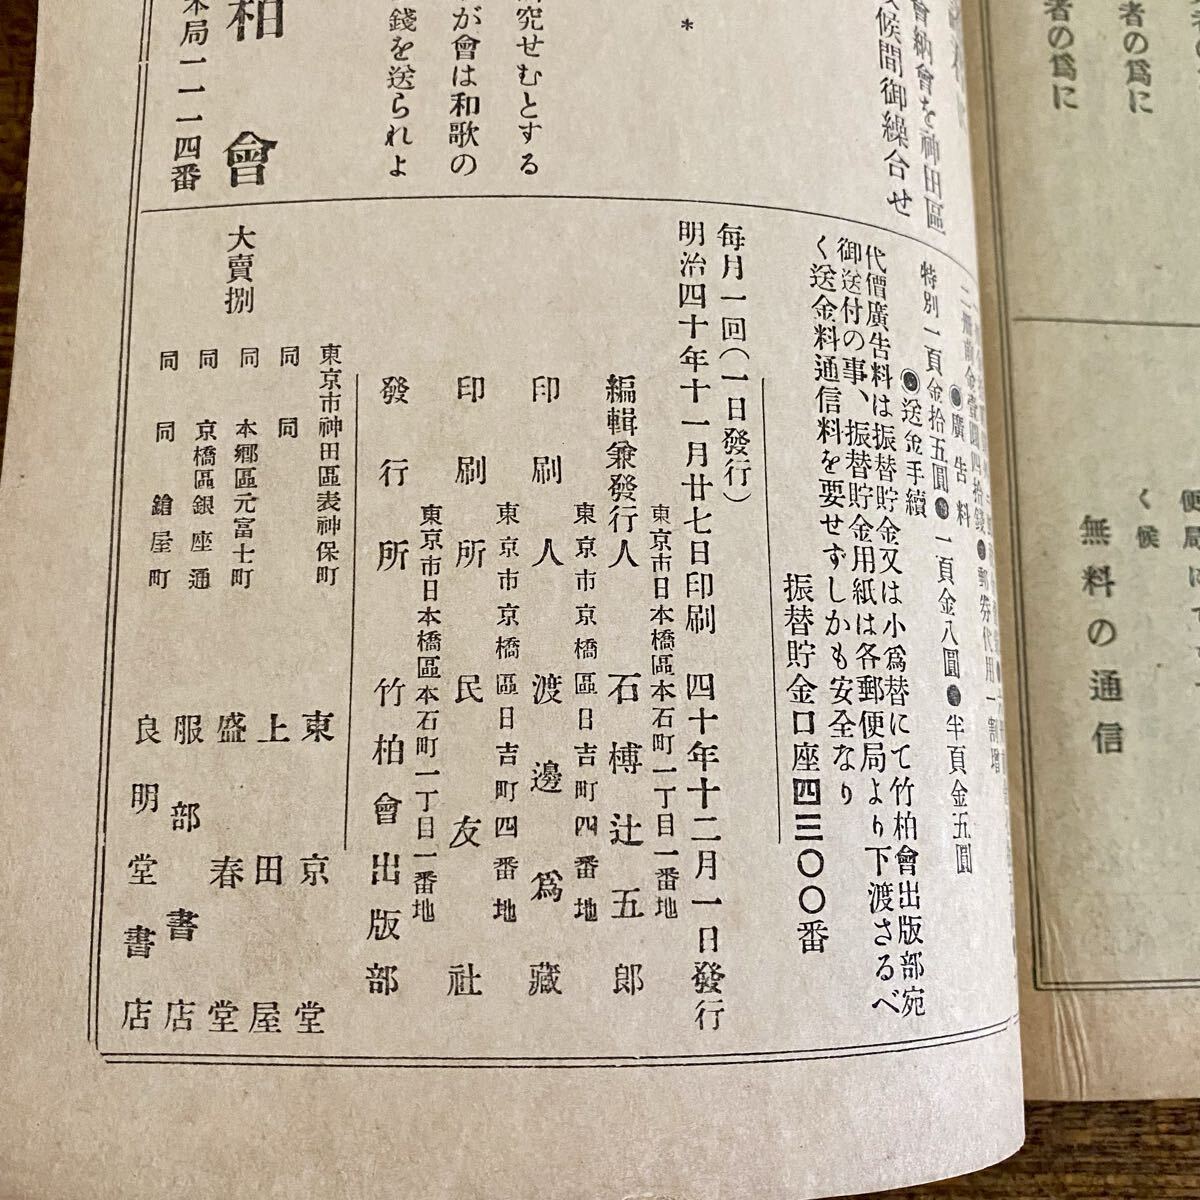 者の為に
者の為に
無料の通信
く候
會納會を神田區
候間御繰合せ
*
究せむとする
が會は和歌の
錢を送られよ
柏會
本局一一一四番
●廣告料
特別一頁金拾五圓●一頁金八圓●半頁金五圓
◉送金手續
代價廣告料は振替貯金又は小爲替にて竹柏會出版部宛
御送付の事、振替貯金用紙は各郵便局より下渡さるべ
く送金料通信料を要せずしかも安全なり
振替貯金口座四三〇〇番
每月一回(一日發行)
明治四十年十一月廿七日印刷 四十年十二月一日發行
東京市日本橋區本石町一丁目一番地
編輯兼發行人 石榑辻五郎
東京市京橋區日吉町四番地
印刷人 渡邊爲藏
東京市京橋區日吉町四番地
印刷所 民友社
東京市日本橋區本石町一丁目一番地
發行所 竹柏會出版部
大賣捌
東京市神田區表神保町 東京堂
同 同 上田屋
同 本鄕區元富士町 盛春堂
同 京橋區銀座通 服部書店
同 同 鎗屋町 良明堂書店